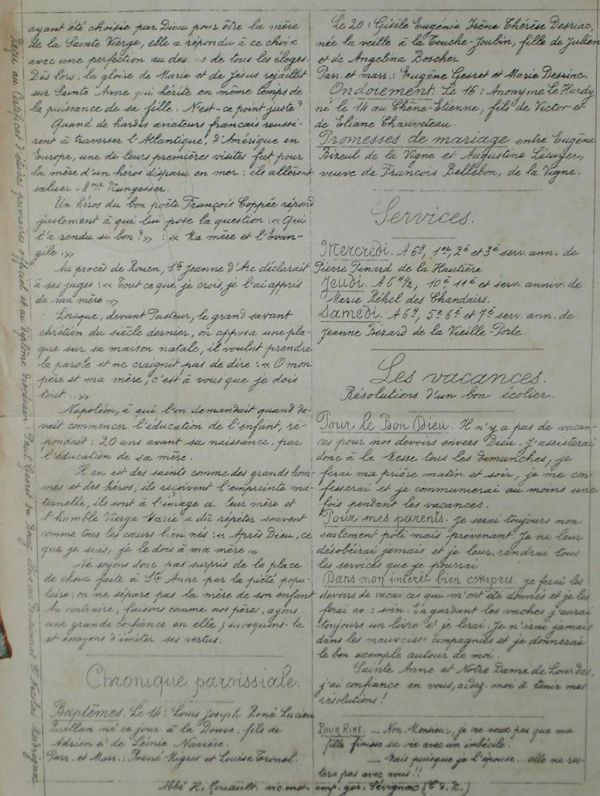 ayant été choisie par Dieu pour être la mère
de la Sainte Vierge, elle a répondu à ce choix
avec une perfection au dessus de tous les éloges.
Dès lors, la gloire de Marie et de Jésus rejaillit
sur Sainte Anne qui hérite en même temps de
la puissance de sa fille. N'est-ce point juste ?
Quand de hardis aviateurs français réussi-
rent à traverser l'Atlantique, d'Amérique en
Europe, une de leurs premières visites fut pour
la mère d'un héros disparu en mer : ils allèrent
saluer Mme Nungesser.
Un héros du bon poète François Coppée répond
justement à qui lui pose la question « Qui
t'a rendu si bon ? » : « Ma mère et l'Évan-
gile »
Au procès de Rouen, Ste Jeanne d'Arc déclarait
à ses juges : « Tout ce que je crois, je l'ai appris
de ma mère »
Lorsque, devant Pasteur, le grand savant
chrétien du siècle dernier, on apposa une pla-
que sur sa maison natale, il voulut prendre
la parole et ne craignit pas de dire : « O mon
père et ma mère, c'est à vous que je dois
tout... »
Napoléon, à qui l'on demandait quand de-
vait commencer l'éducation de l'enfant, ré-
pondait : 20 ans avant sa naissance, par
l'éducation de sa mère.
Il en est des saints comme des grands hom-
mes et des héros, ils reçoivent l'empreinte ma-
ternelle, ils sont à l'image de leur mère et
l'humble Vierge Marie a dû répéter souvent
comme tous les cœurs bien nés « Après Dieu, ce
que je suis, je le dois à ma mère »
Ne soyons donc pas surpris de la place
de choix faite à Ste Anne par la piété popu-
laire : on ne sépare pas la mère de son enfant
Au contraire, faisons comme nos pères, ayons
une grande confiance en elle ; invoquons-la
et essayons d'imiter ses vertus.
Chronique paroissiale.
Baptêmes. Le 14 : Louis Joseph René Lucien
né ce jour à la Douve, fils de
Adrien et de Léonie
Parr. et Marr. : et Louise
Le 20 : Gisèle Eugénie Irène Thérèse
née la veille à la Touche-Joubin, fille de Julien
et de Angelina Boscher
Parr. et marr. : Eugène Gesret et Marie
Ondoiement. Le 16 : Anonyme Le Hardy
né le 14 au Chêne-Étienne, fils de Victor et
de Eliane
Promesses de mariage entre Eugène
de la Vigne et Augustine
veuve de François Bellebon, de la Vigne.
Services.
Mercredi. A 6h, 1er, 2e et 3e serv. ann. de
Pierre Pinard de la Hautière
Jeudi. A 6h 1/2, 10e 11e et serv. anniv. de
Marie Réhel des Chandairs.
Samedi. A 6h, 5e 6e et 7e serv. ann. de
Jeanne Bézard de la Vieille-Porte.
Les vacances.
Résolutions d'un bon écolier.
Pour le Bon Dieu. Il n'y a pas de vacan-
ces pour nos devoirs envers Dieu. J'assisterai
donc à la Messe tous les dimanches, je
ferai ma prière matin et soir, je me con-
fesserai et je communierai au moins une
fois pendant les vacances.
Pour mes parents. Je serai toujours non
seulement poli mais prévenant. Je ne leur
désobéirai jamais et je leur rendrai tous
les services que je pourrai
Dans mon intérêt bien compris, je ferai les
devoirs de vacances qui m'ont été donnés et je les
ferai avec soin. En gardant les vaches j'aurai
toujours un livre et je lirai. Je n'irai jamais
dans les mauvaises compagnies et je donnerai
le bon exemple autour de moi.
Sainte Anne et Notre Dame de Lourdes,
j'ai confiance en vous, aidez-moi à tenir mes
résolutions !
Pour Rire – Non, Monsieur, je ne veux pas que ma
fille finisse sa vie avec un imbécile.
– Mais puisque je l'épouse... elle ne res-
tera pas avec vous !!
Abbé H. Rouault, vic. inst. imp. ger. Sévignac (C. d. N.)
Reçu au Certificat d'études primaires officiel et au diplôme